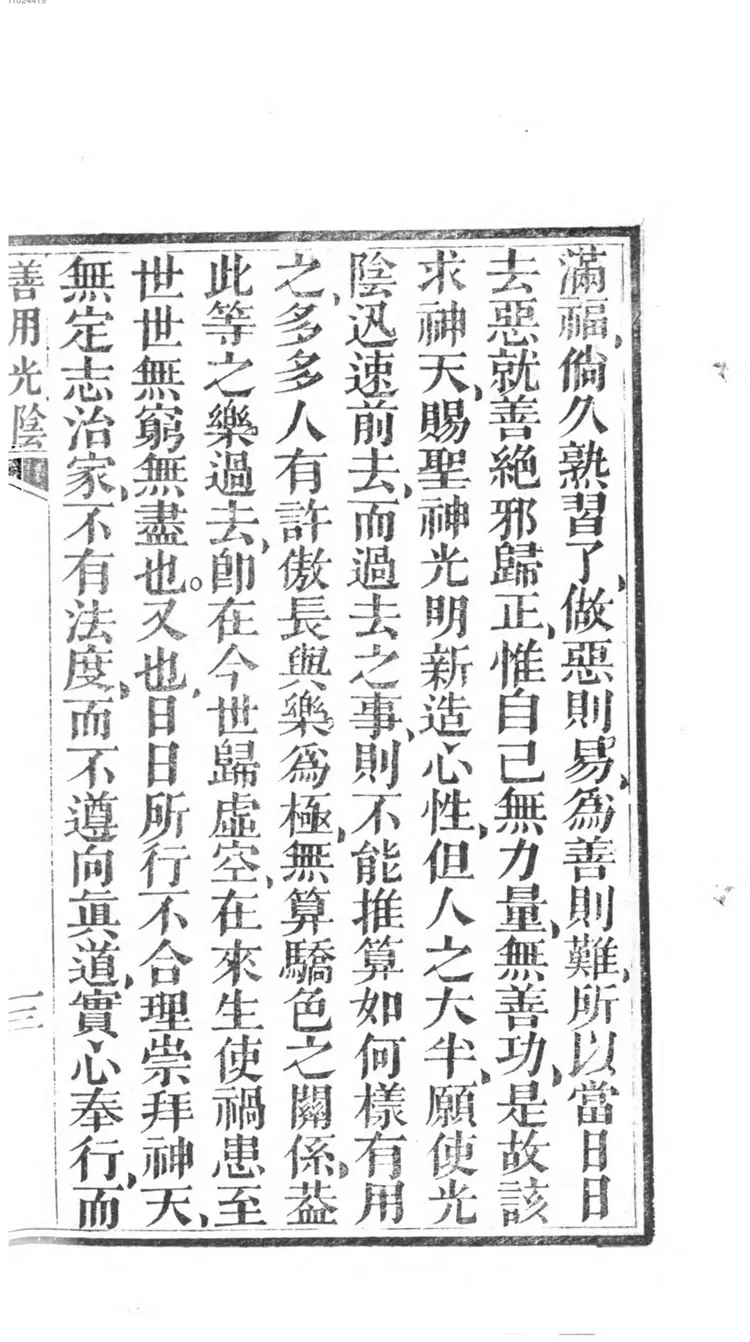 11024419
滿福,倘久熟習了,做惡則易,為善則難,所以當日日
去惡就善絕邪歸正,惟自己無力量,無善功,是故該
求神天,賜聖神光明新造心性,但人之大半,願使光
陰迅速前去,而過去之事,則不能推算如何樣有用
之,多多人有許傲長與樂為極,無算驕色之關係,葢
此等之樂過去,卽在今世歸虛空,在來生使禍患至
世世無窮無盡也。又也,日日所行不合理崇拜神天,
無定志治家,不有法度,而不遵向眞道,實心奉行,而
善用光陰 三